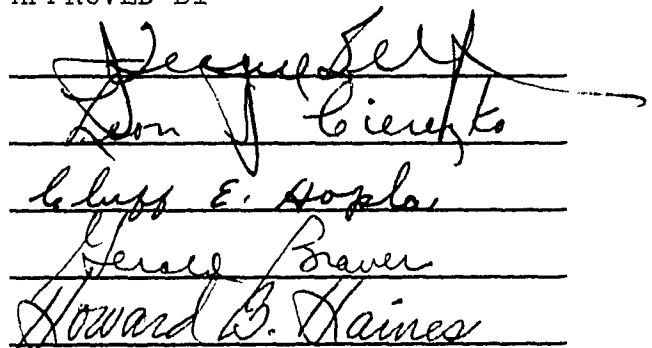 APPROVED BY
Leon J Ciereszko
Cluff E. Hopla
Gerald Braver
Howard B. Haines